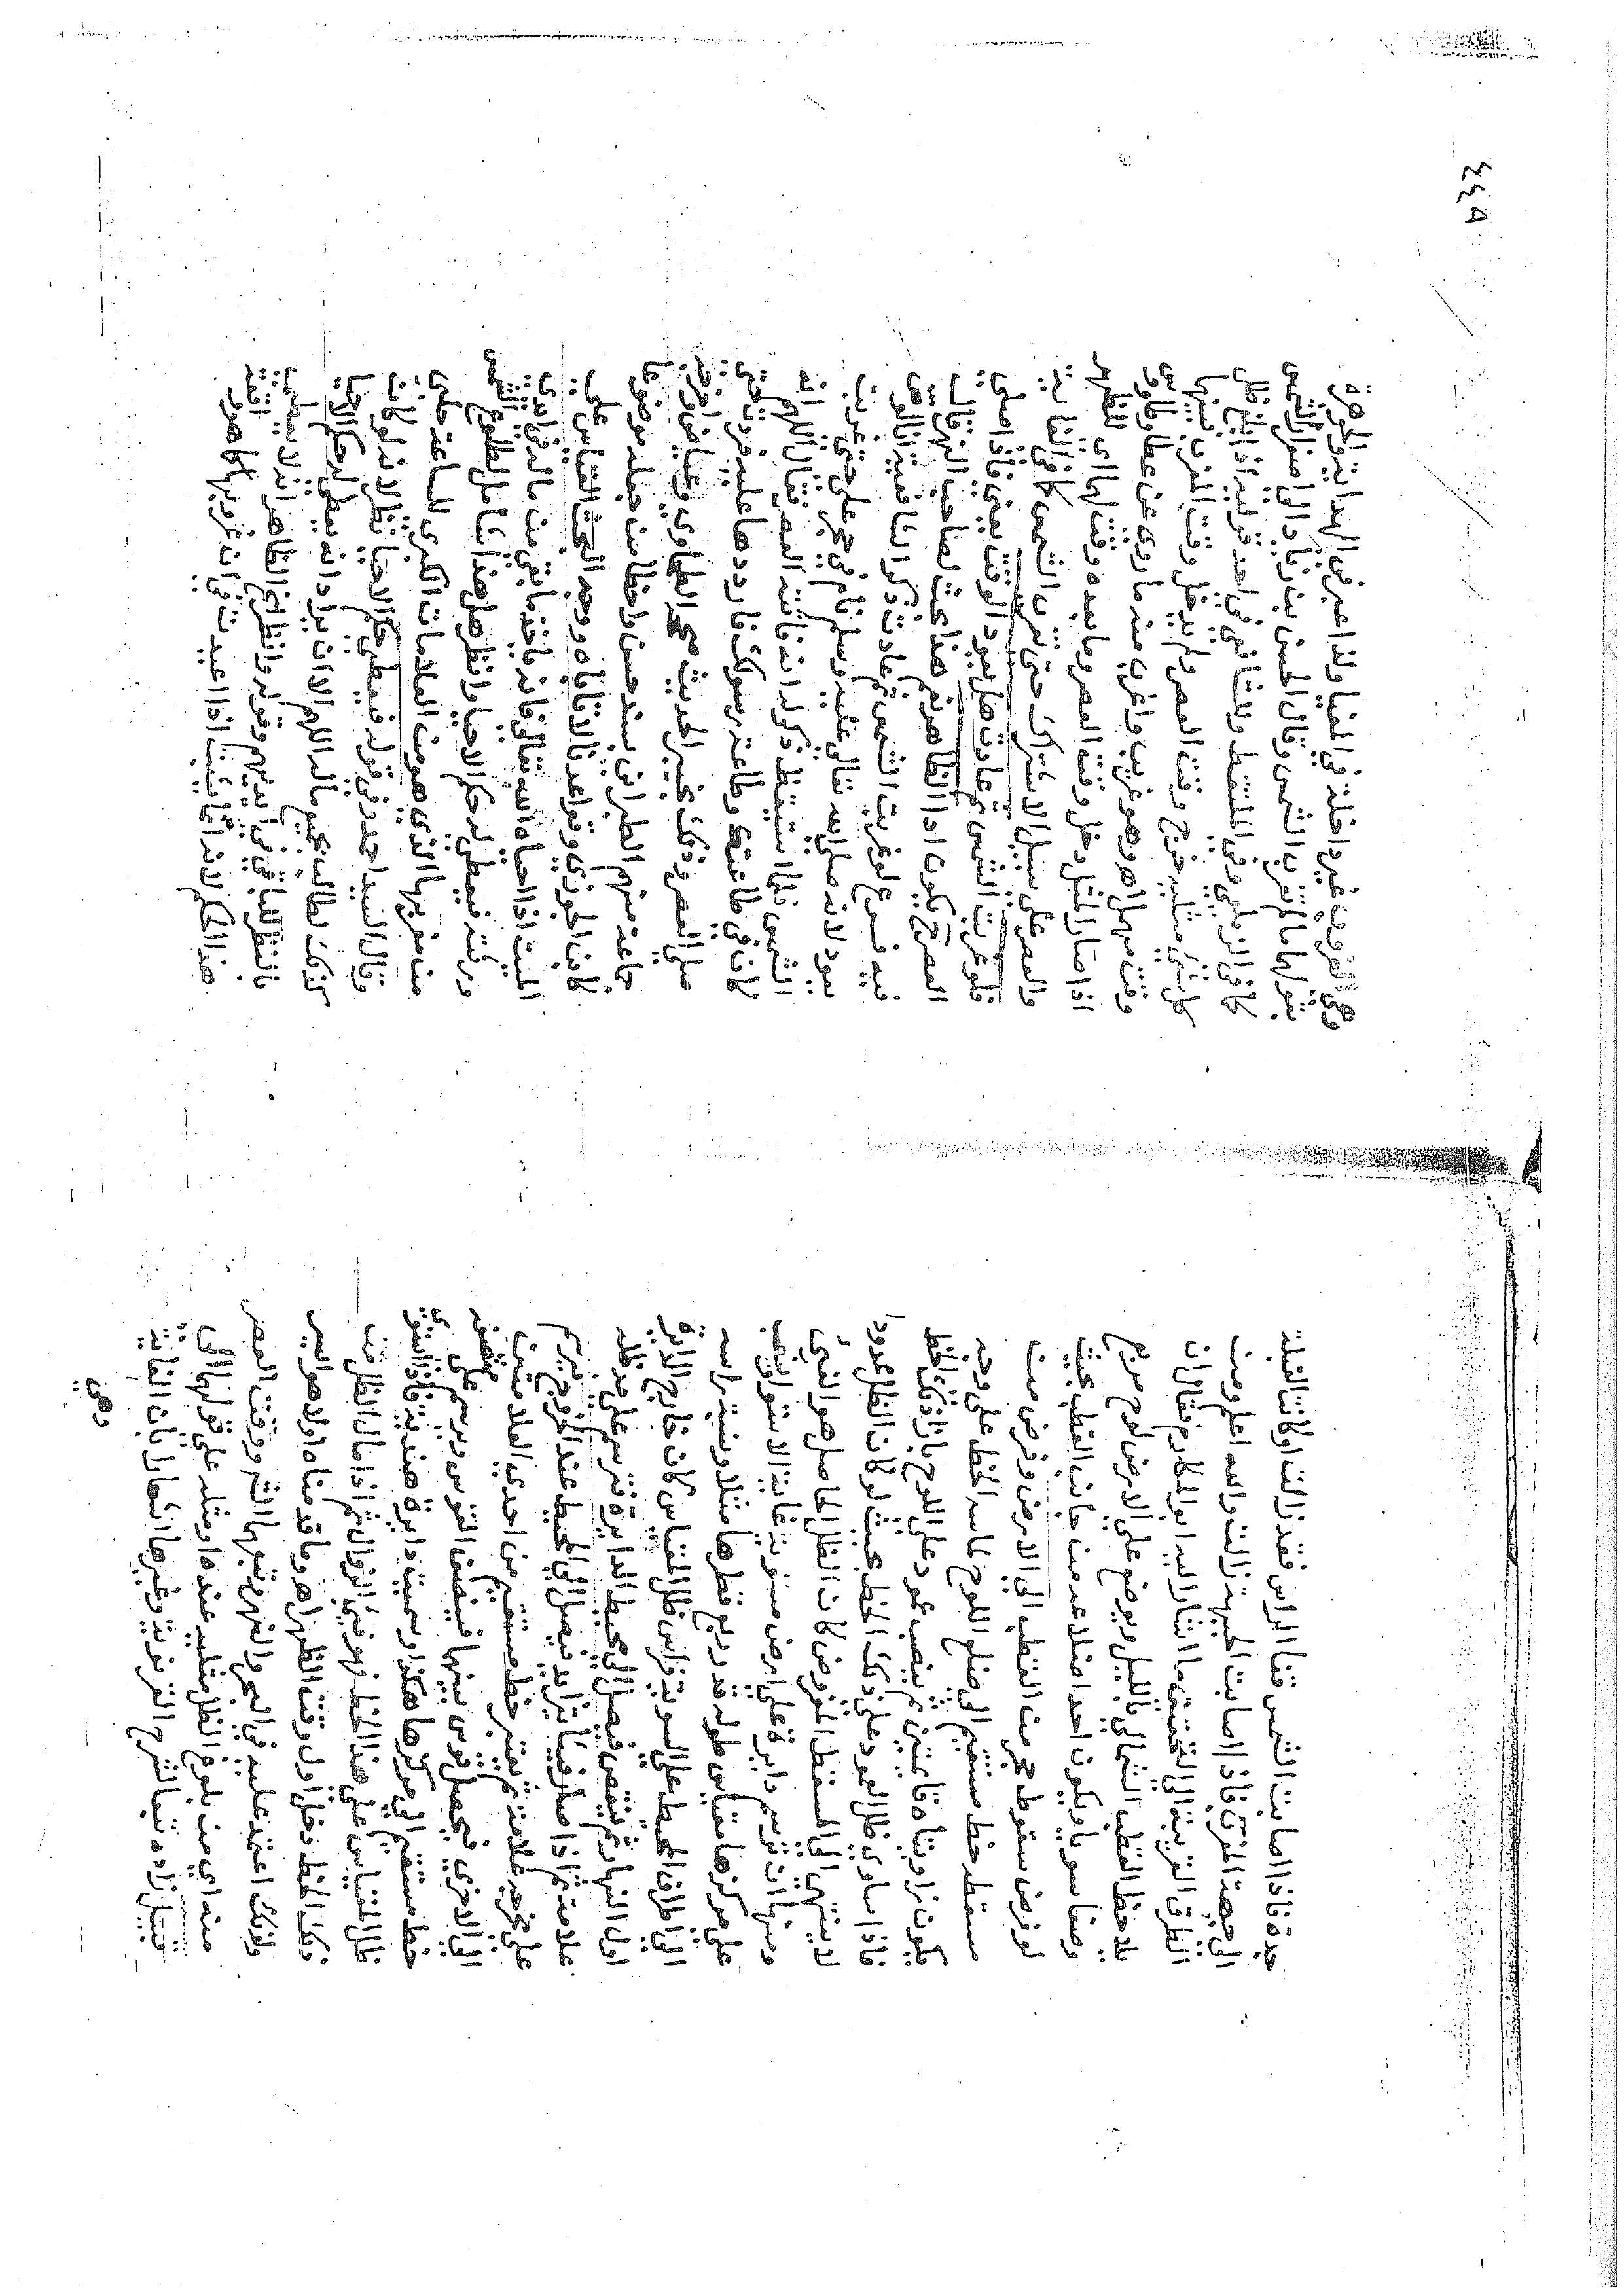 حده فاذا اصابت الشمس قفا الراس فقد زالت او كانت القبلة
الى جهة المغرب فاذا اصابت الجبهة زالت والله اعلم ومن
الطرق القريبة الى التحقيق ما اشار اليه ابو المكارم فقال ان
يلاحظ القطب الشمالي بالليل ويوضع على الارض لوح مربع
وضعا سويا ويكون احد اضلاعه من جانب القطب بحيث
لو فرض سقوط حجر من القطب الى الارض وفرض من
مسقطه خط مستقيم الى ضلع اللوح لماسه الخط على وجه
يكون زاويتاه قائمتين ثم ينصب عمود على اللوح بازاء ذلك الخط
فاذا ساوى ظل العمود على ذلك الخط بحيث لو كان الظل ممدودا
لا ينتهى الى المسقط المفروض كان الظل الحاصل هو الفيء
ومنها ان ترسم دايرة على ارض مستوية غاية الاستواء وينصب
على مركزها مقياس طوله قدر ربع قطرها مثلا ونسبة راسه
الى اطراف المحيط على السوية فراس ظل المقياس كان خارج الدايرة
اول النهار ثم ينقص فيصل الى محيط الدايرة فترسم على مدخله
علامة ثم اذا صار فيئا يتزايد فيصل الى المحيط عند الخروج فترسم
على مخرجه علامة ثم يعتبر خط مستقيم من احدى العلامتين
الى الاخرى فيحصل قوس بينهما فينصف القوس ويرسم على منتصفه
خط مستقيم الى مركزها هكذا وسميت دايرة هندية فاذا استوى
ظل المقياس على هذا الخط فهو فيء الزوال ثم اذا مال الظل من
ذلك الخط دخل اول وقت الظهر اهـ وما قدمناه اولا هو ايسر
ولذلك اعتمد عليه في البحر والنهر وتبعهما الشرح ووقت العصر
منه اي من بلوغ الظل مثليه عنده او مثله على قولهما الى
قبيل زاده تبعا لشرح الغزنوية وغيرها اشعارا بان الغاية
وهي
٤٤٥
وهي الغروب غير داخلة في المغيا ولذا عبر في الهداية والجوهرة
بقولهما ما لم تغرب الشمس وقال الحسن بن زياد الى اصفرار الشمس
كما في الزيلعي وفي الملتقط وللشافعي في احد قوليه اذا بلغ ظل
كل شيء مثليه خرج وقت العصر ولم يدخل وقت المغرب فبينهما
وقت مهمل اهـ وهو غريب واغرب منه ما روى عن عطا وطاوس
اذا صار المثل دخل وقت العصر وما بعده وقت لهما اي للظهر
والعصر على سبيل الاشتراك حتى تغرب الشمس كما في الغاية
فلو غربت الشمس ثم عادت هل يعود الوقت يعني فاذا صلى
العصر يكون ادا الظاهر نعم هذا بحث لصاحب النهر قال
فيه فرع لو غربت الشمس ثم عادت ذكر الشافعية ان الوقت
يعود لانه صلى الله تعالى عليه وسلم نام في حجر علي حتى غربت
الشمس فلما استيقظ ذكر له انه فاتته العصر فقال اللهم انه
كان في طاعتك وطاعة رسولك فارددها عليه فردت حتى
صلى العصر وذلك بخيبر الحديث صححه الطحاوي وعياض واخرجه
جماعة منهم الطبراني بسند حسن واخطا من جعله موضوعا
كابن الجوزي وقواعدنا لا تاباه ووجه البحث القياس على
الميت اذا احياه الله تعالى فانه ياخذ ما بقي من ماله في ايدي
ورثته فيعطى له حكم الاحيا وانظر هل هذا شامل لطلوع الشمس
من مغربها الذي هو من العلامات الكبرى للساعة حلبى
وقال السيد احمد وفي قوله فيعطى حكم الاحيا نظر لانه لو كان
كذلك لطالب بجميع ماله اللهم الا ان يراد انه يعطى له حكم الاحيا
بالنظر للباقي في ايديهم وقوله وانظر الخ الظاهر انه لا يعطى
هذا الحكم لانه انما يثبت اذا اعيدت في ان غروبها كما هو